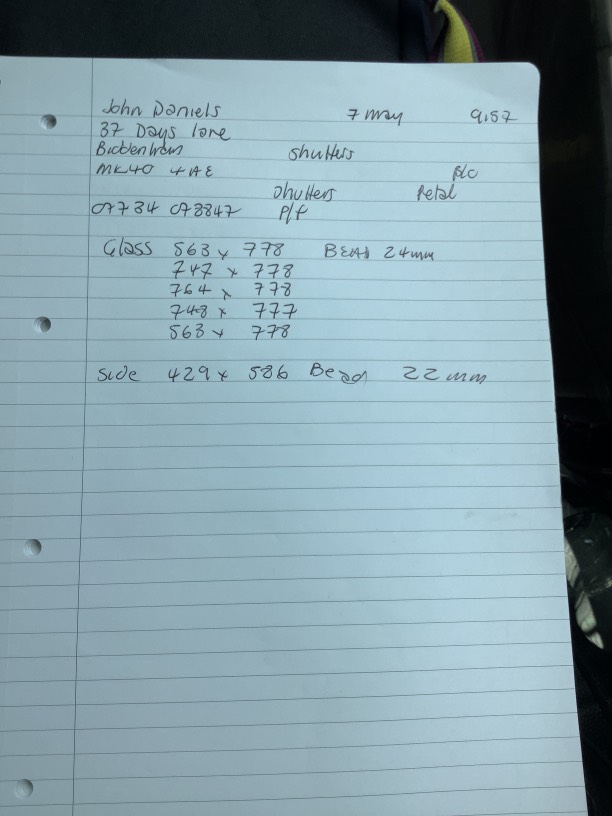 John Daniels 7 may 9.57
37 Days lane
Biddenham shutters
MK40 4AE B/O
shutters Petal
07734 073847 P/f
Glass 563 x 778 BEAD 24mm
747 x 778
764 x 778
748 x 777
563 x 778
Side 429 x 586 Bead 22mm